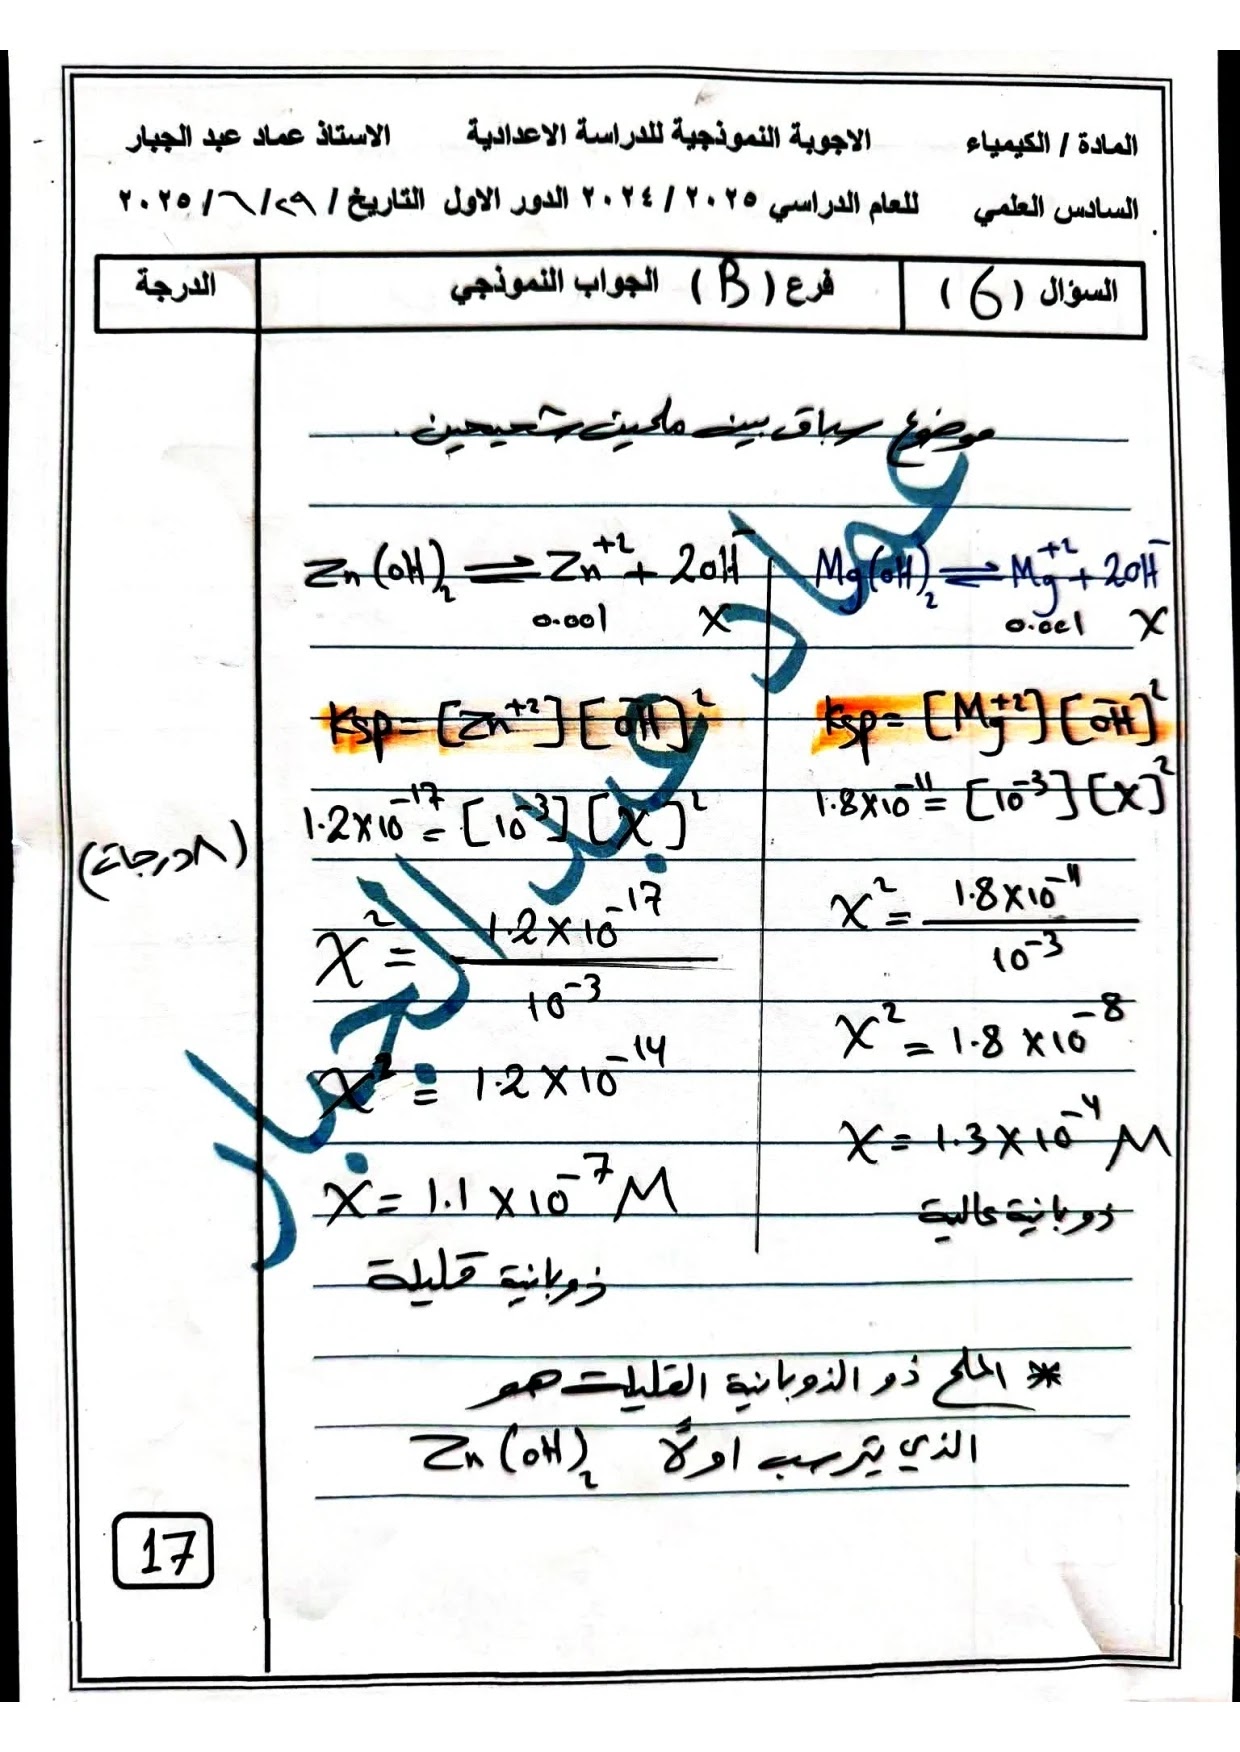 المادة / الكيمياء الاجوبة النموذجية للدراسة الاعدادية الاستاذ عماد عبد الجبار
السادس العلمي للعام الدراسي ٢٠٢٤ / ٢٠٢٥ الدور الاول التاريخ / ٢٩ / ٦ / ٢٠٢٥
السؤال ( 6 ) فرع ( B ) الجواب النموذجي الدرجة
موضوع سباق بين ملحين شحيحين .
Mg(OH)₂ ⇌ Mg⁺² + 2OH⁻
0.001 X
Ksp = [Mg⁺²] [OH⁻]²
1.8×10⁻¹¹ = [10⁻³] [X]²
X² = 1.8×10⁻¹¹
10⁻³
X² = 1.8 ×10⁻⁸
X = 1.3×10⁻⁴ M
ذوبانية عالية
Zn(OH)₂ ⇌ Zn⁺² + 2OH⁻
0.001 X
Ksp = [Zn⁺²] [OH⁻]²
1.2×10⁻¹⁷ = [10⁻³] [X]²
X² = 1.2×10⁻¹⁷
10⁻³
X² = 1.2×10⁻¹⁴
X = 1.1×10⁻⁷ M
ذوبانية قليلة
* الملح ذو الذوبانية القليلة هو
الذي يترسب اولاً Zn(OH)₂
(٨ درجات)
17
عماد عبد الجبار